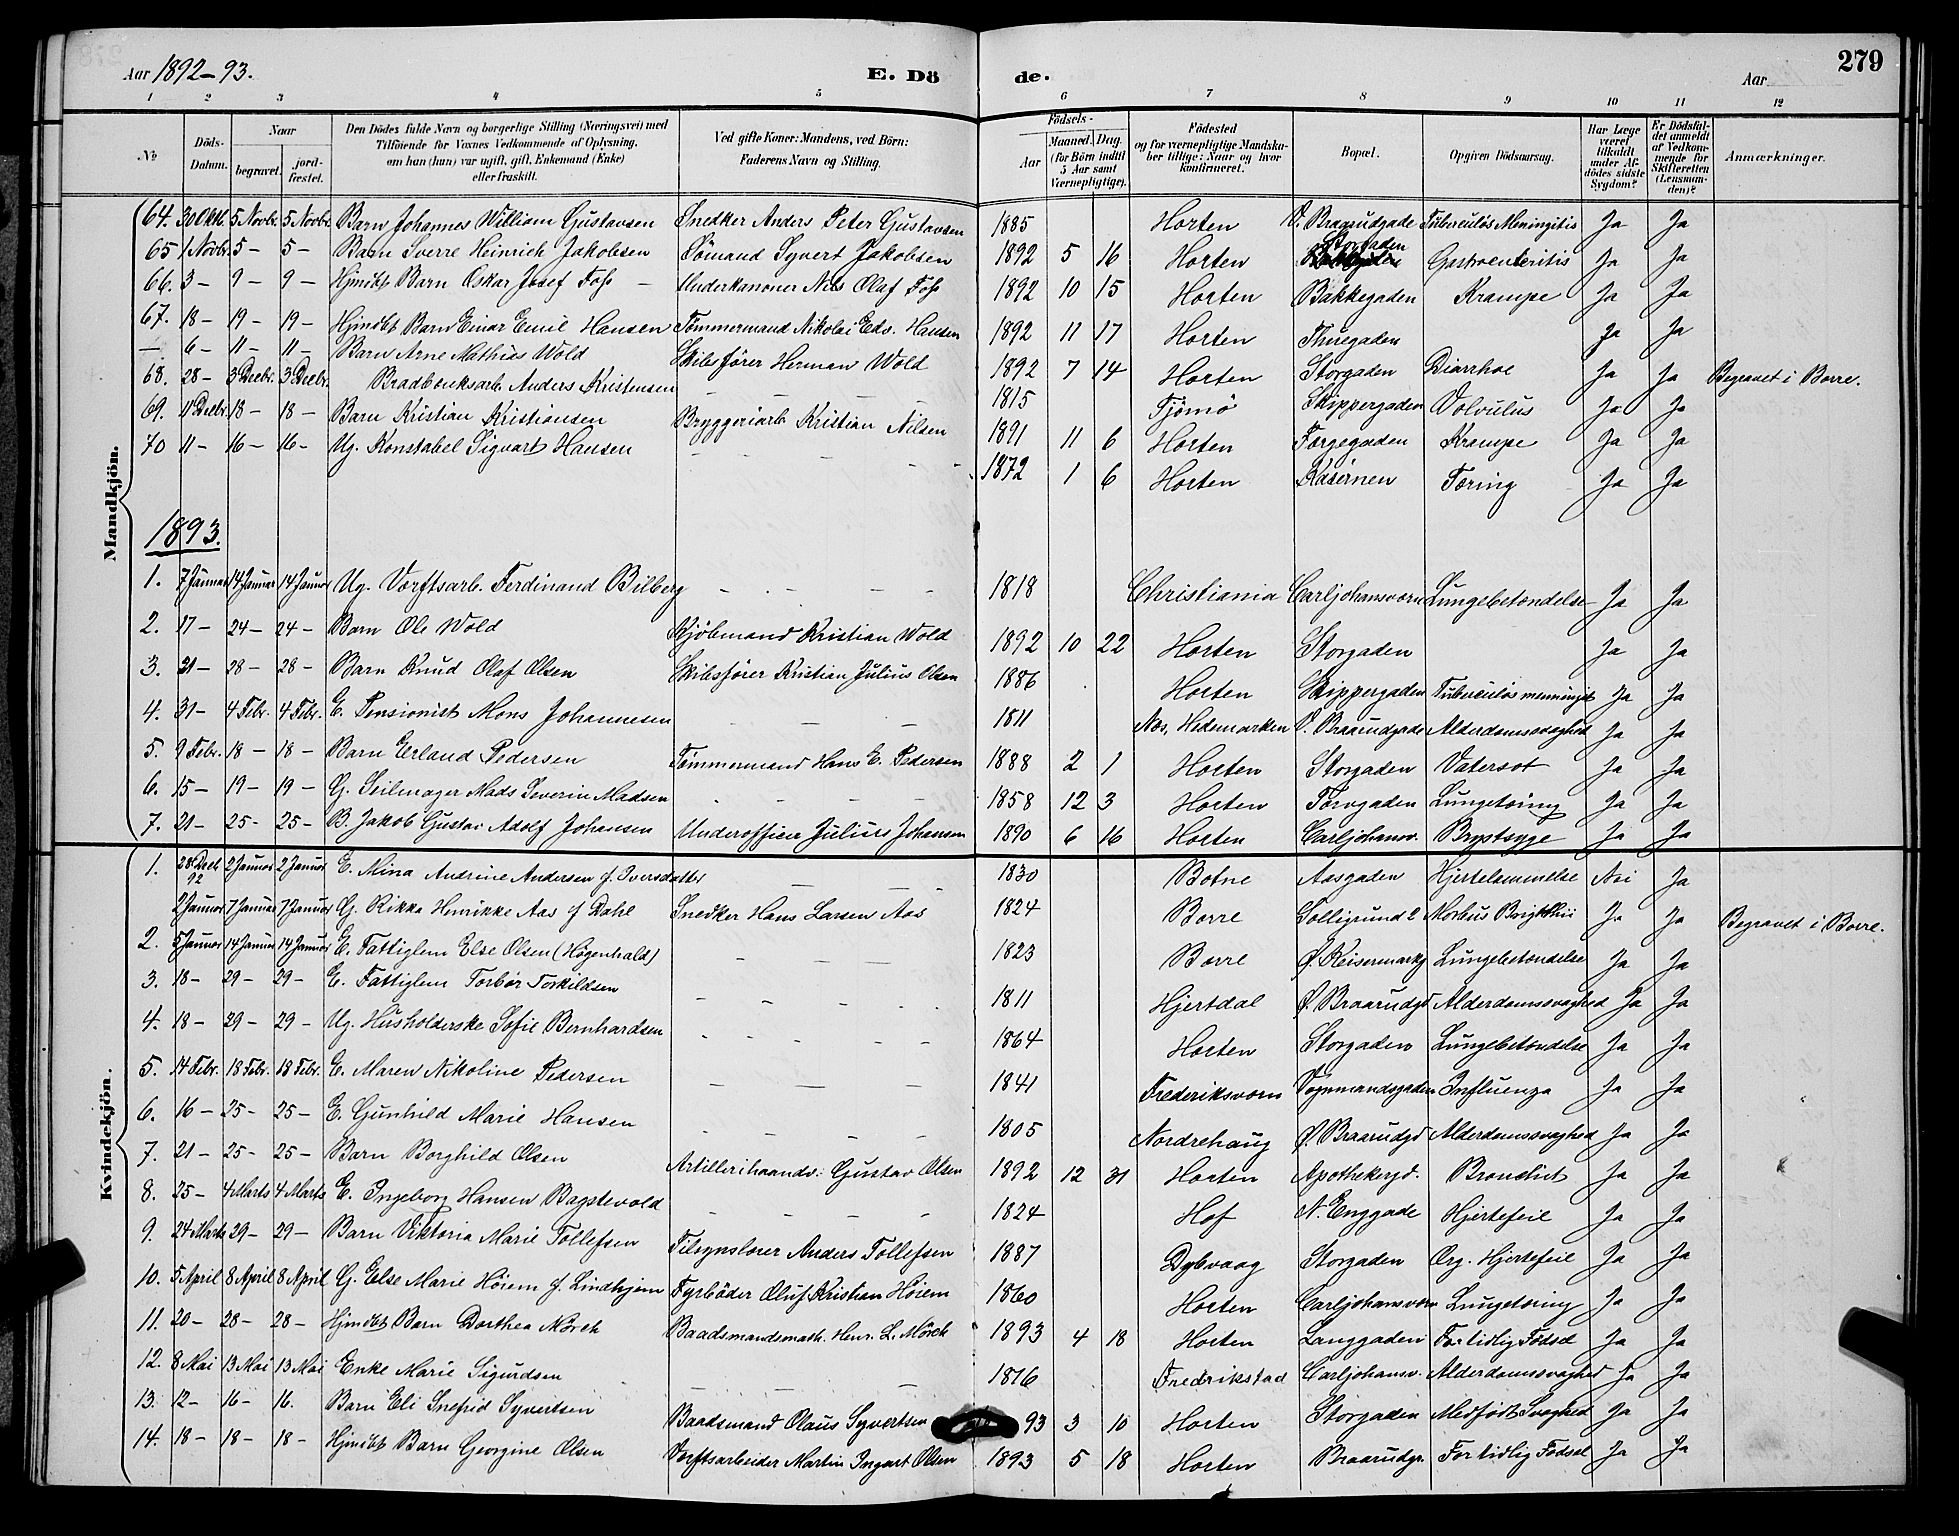 Aar 1892-93. E. Dö de. Aar 279
1 2 3 4 5 6 7 8 9 10 11 12
No Döds-Datum. Naar begravet. jordfæstet. Den Dödes fulde Navn og borgerlige Stilling (Næringsvei) med Tilföiende for Voxnes Vedkommende af Oplysning, om han (hun) var ugift, gift, Enkemand (Enke) eller fraskilt. Ved gifte Koner: Mandens, ved Börn: Faderens Navn og Stilling. Födsels- Aar Maaned. Dag. (for Börn indtil 5 Aar samt Værnepligtige). Födested og for værnepligtige Mandskaber tillige: Naar og hvor konfirmeret. Bopæl. Opgiven Dödsaarsag. Har Læge været tilkaldt under Afdödes sidste Sygdom? Er Dödsfaldet anmeldt af Vedkommende for Skifteretten (Lensmanden)? Anmærkninger.
Mandkjön.
64. 30 Oktb. 5 Novbr. 5 Novbr. Barn Johannes William Gustavsen Snedker Anders Peter Gustavsen 1885 Horten V. Braarudgade Tuberculøs Meningitis Ja Ja
65 1 Novbr. 5 - 5 - Barn Sverre Heinrich Jakobsen Sømand Syvert Jakobsen 1892 5 16 Horten Storgaden Gastroenteritis Ja Ja
66. 3 - 9 - 9 - Hjmdbt Barn Oskar Josef Foss - Underkanoner Nils Olaf Foss 1892 10 15 Horten Bakkegaden Krampe Ja Ja
67. 18 - 19 - 19 - Hjmdbt Barn Einar Emil Hansen Tømmermand Nikolai Edv. Hansen 1892 11 17 Horten Thuegaden Ja Ja
— 6 - 11 - 11 - Barn Arne Mathias Wold Skibsfører Herman Wold 1892 7 14 Horten Storgaden Diarrhoe Ja Ja Begravet i Borre.
68. 28 - 3 Decbr. 3 Decbr. Bradbænksarb. Anders Kristensen - - - - 1815 Tjömö Skippergaden Volvulus Ja Ja
69. 11 Decbr. 18 - 18 - Barn Kristian Kristiansen Bryggeriarb. Kristian Nilsen 1891 11 6 Horten Færgegaden Krampe Ja Ja
70 11 - 16 - 16 - Ug. Konstabel Sigvart Hansen - - - - 1872 1 6 Horten Kasernen Tæring Ja Ja
1893.
1. 7 Januar 14 Januar 14 Januar Ug. Værftsarb. Ferdinand Bilberg - - - - 1818 Christiania Carljohansværn Lungebetændelse Ja Ja
2. 17 - 24 - 24 - Barn Ole Wold Kjöbmand Kristian Wold 1892 10 22 Horten Storgaden Ja Ja
3. 21 - 28 - 28 - Barn Knud Olaf Olsen Skibsfører Kristian Julius Olsen 1886 Horten Skippergaden Tuberculøs menningit Ja Ja
4. 31 - 4 Febr. 4 Febr. E. Pensionist Mons Johannesen - - - 1811 Næs, Hedemarken V. Braarudgade Alderdomssvaghed Ja Ja
5. 9 Febr. 18 - 18 - Barn Erland Pedersen Tømmermand Hans E. Pedersen 1888 2 1 Horten Storgaden Vatersot Ja Ja
6. 15 - 19 - 19 - G. Seilmager Mads Severin Madsen - - - - 1858 12 3 Horten Torvgaden Lungetæring Ja Ja
7. 21 - 25 - 25 - B. Jakob Gustav Adolf Johansen Underofficer Julius Johansen 1890 6 16 Horten Carljohansv. Brystsyge Ja Ja
Kvindekjön.
1. 28 Decb 92 2 Januar 2 Januar E. Mina Andrine Andersen f. Iversdatter - - - 1830 Botne Aasgaden Hjertelammelse Nei Ja
2 Januar 7 Januar 7 Januar G. Rikka Henrikke Aas f Dahl Snedker Hans Larsen Aas 1824 Borre Solligrund 2 Morbus Brightii Ja Ja Begravet i Borre.
2. 5 Januar 14 Januar 14 Januar E. Fattiglem Else Olsen (Högenhald) - - - - 1823 Borre Ø. Keisermarkg Lungebetændelse Ja Ja
3. 18 - 29 - 29 - E. Fattiglem Torbør Torkildsen - - - - 1811 Hjertdal Ø. Braarudgd Alderdomssvaghed Ja Ja
4. 18 - 29 - 29 - Ug. Husholderske Sofie Bernhardsen - - - - 1864 Horten Storgaden Lungebetændelse Ja Ja
5. 14 Febr. 18 Febr. 18 Febr. E. Maren Nikoline Pedersen - - - 1841 Frederiksværn Vognmandsgaden Influenza Ja Ja
6. 16 - 25 - 25 - E. Gunhild Marie Hansen - - - - 1805 Nordrehaug Ø. Braarudgd Alderdomssvaghed Ja Ja
7. 21 - 25 - 25 - Barn Borghild Olsen Artillerihaandv. Gustav Olsen 1892 12 31 Horten Apothekergd. Bronchit Ja Ja
8. 25 - 4 Marts 4 Marts E. Ingeborg Hansen Bagstevold - - - - 1824 Hof N. Enggade Hjertefeil Ja Ja
9. 24 Marts 29 - 29 - Barn Viktoria Marie Tollefsen Tilsynslærer Anders Tollefsen 1887 Dybvaag Storgaden Org. Hjertefeil Ja Ja
10. 5 April 8 April 8 April G. Else Marie Höiem f. Lindhjem Fyrböder Oluf Kristian Höiem 1860 Horten Carljohansværn Lungetæring Ja Ja
11. 20 - 28 - 28 - Hjmdbt Barn Dorthea Mörch Baadsmandsmath. Henr. L. Mörch 1893 4 18 Horten Langgaden For tidlig Fødsel Ja Ja
12. 8 Mai 13 Mai 13 Mai Enke Marie Sigurdsen - - - - 1816 Fredrikstad Carljohansv. Alderdomssvaghed Ja Ja
13. 12 - 16 - 16. Barn Eli Snefrid Syvertsen Baadsmand Olaus Syvertsen 93 3 10 Horten Storgaden Medfødt Svaghed Ja Ja
14. 18 - 18 - 18 - Hjmdbt Barn Georgine Olsen Værftsarbeider Martin Ingvart Olsen 1893 5 18 Horten Braarudgr. For tidlig Fødsel Ja Ja